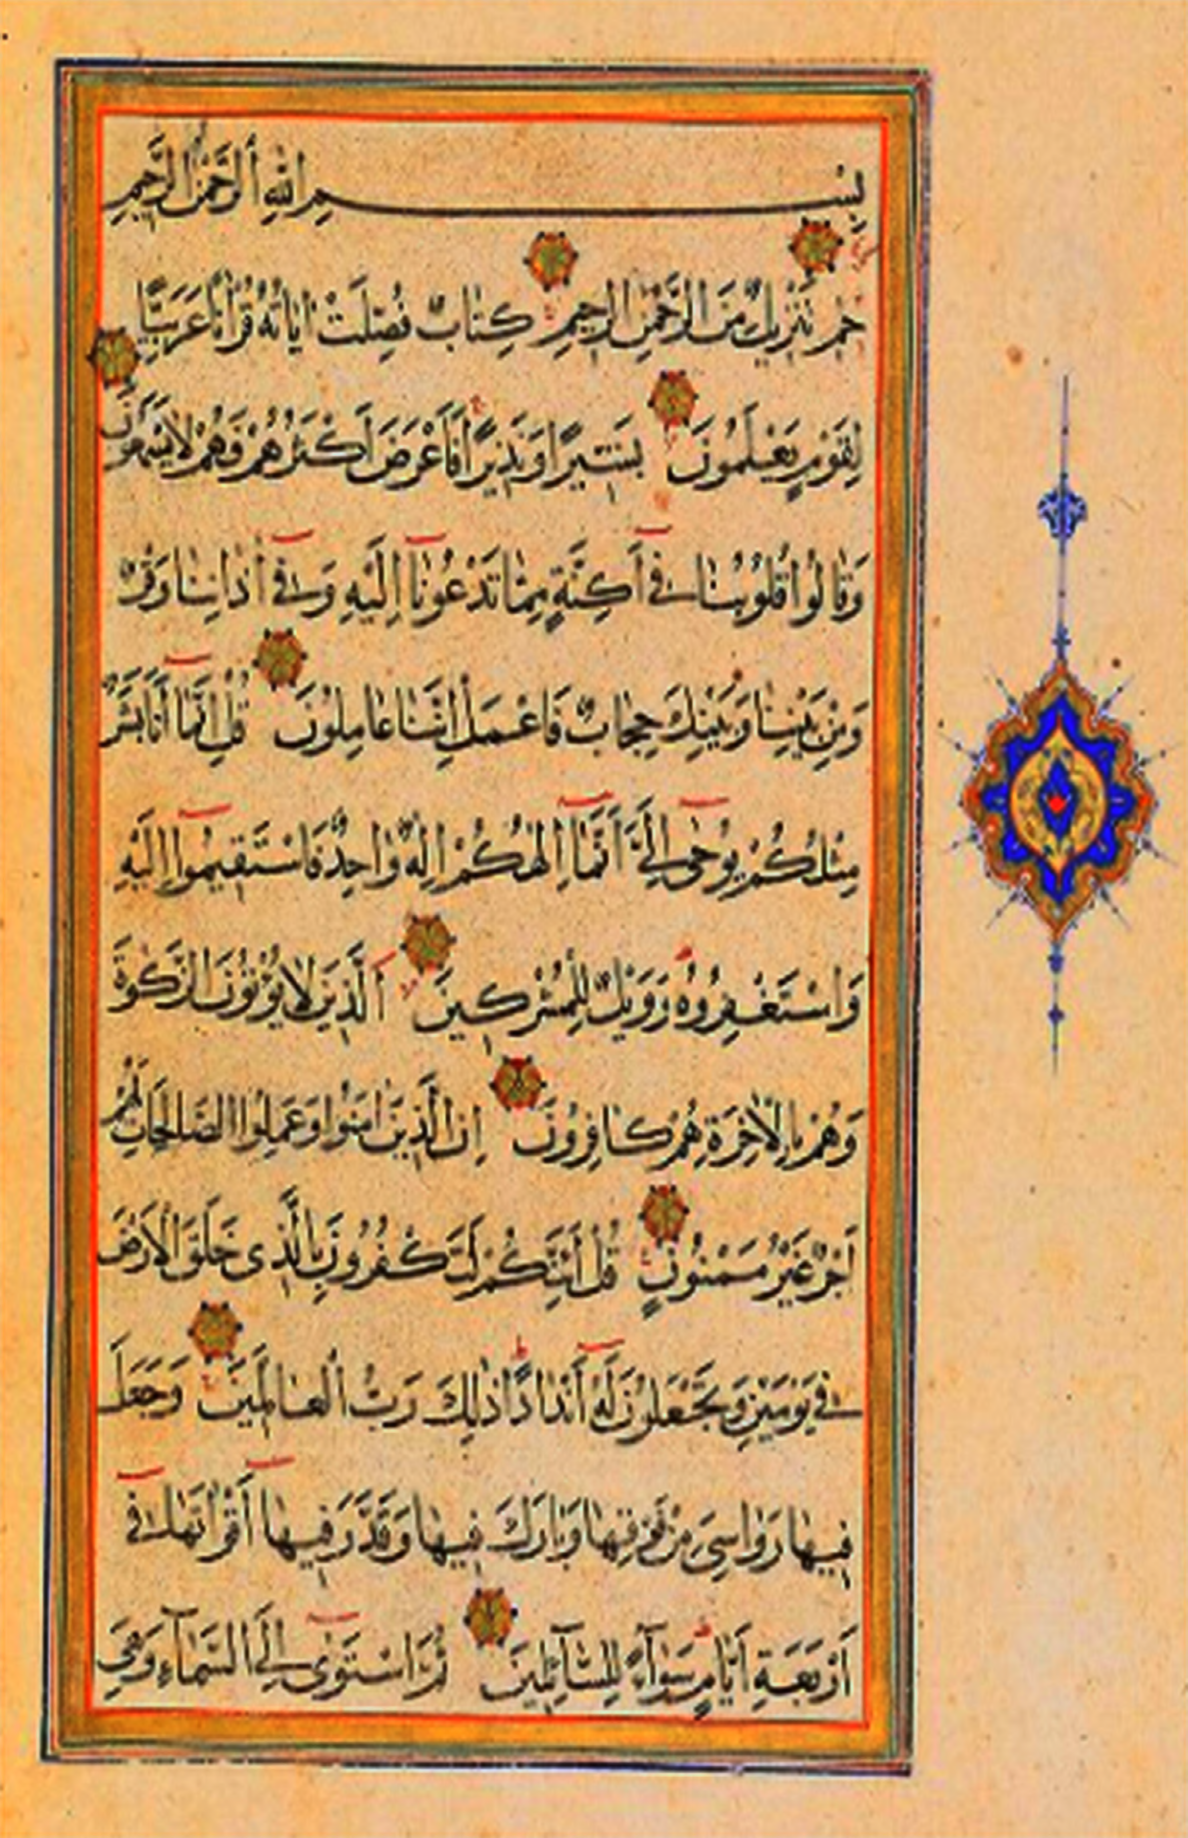 بِسْمِ اللّٰهِ الرَّحْمٰنِ الرَّحِيمِ
حٰم تَنْزِيلٌ مِنَ الرَّحْمٰنِ الرَّحِيمِ كِتَابٌ فُصِّلَتْ اٰيَاتُهُ قُرْاٰنًا عَرَبِيًّا
لِقَوْمٍ يَعْلَمُونَ بَشِيرًا وَنَذِيرًا فَأَعْرَضَ أَكْثَرُهُمْ فَهُمْ لَا يَسْمَعُونَ
وَقَالُوا قُلُوبُنَا فِي أَكِنَّةٍ مِمَّا تَدْعُونَآ إِلَيْهِ وَفِي اٰذَانِنَا وَقْرٌ
وَمِنْ بَيْنِنَا وَبَيْنِكَ حِجَابٌ فَاعْمَلْ إِنَّنَا عَامِلُونَ قُلْ إِنَّمَآ أَنَا بَشَرٌ
مِثْلُكُمْ يُوحَى إِلَيَّ أَنَّمَآ إِلٰهُكُمْ إِلٰهٌ وَاحِدٌ فَاسْتَقِيمُوا إِلَيْهِ
وَاسْتَغْفِرُوهُ وَوَيْلٌ لِلْمُشْرِكِينَ اَلَّذِينَ لَا يُؤْتُونَ الزَّكٰوةَ
وَهُمْ بِالْاٰخِرَةِ هُمْ كَافِرُونَ إِنَّ الَّذِينَ اٰمَنُوا وَعَمِلُوا الصَّالِحَاتِ لَهُمْ
أَجْرٌ غَيْرُ مَمْنُونٍ قُلْ أَئِنَّكُمْ لَتَكْفُرُونَ بِالَّذِى خَلَقَ الْأَرْضَ
فِي يَوْمَيْنِ وَتَجْعَلُونَ لَهُ أَنْدَادًا ذٰلِكَ رَبُّ الْعَالَمِينَ وَجَعَلَ
فِيهَا رَوَاسِيَ مِنْ فَوْقِهَا وَبَارَكَ فِيهَا وَقَدَّرَ فِيهَا أَقْوَاتَهَا فِي
أَرْبَعَةِ أَيَّامٍ سَوَآءً لِلسَّآئِلِينَ ثُمَّ اسْتَوٰى إِلَى السَّمَآءِ وَهِيَ